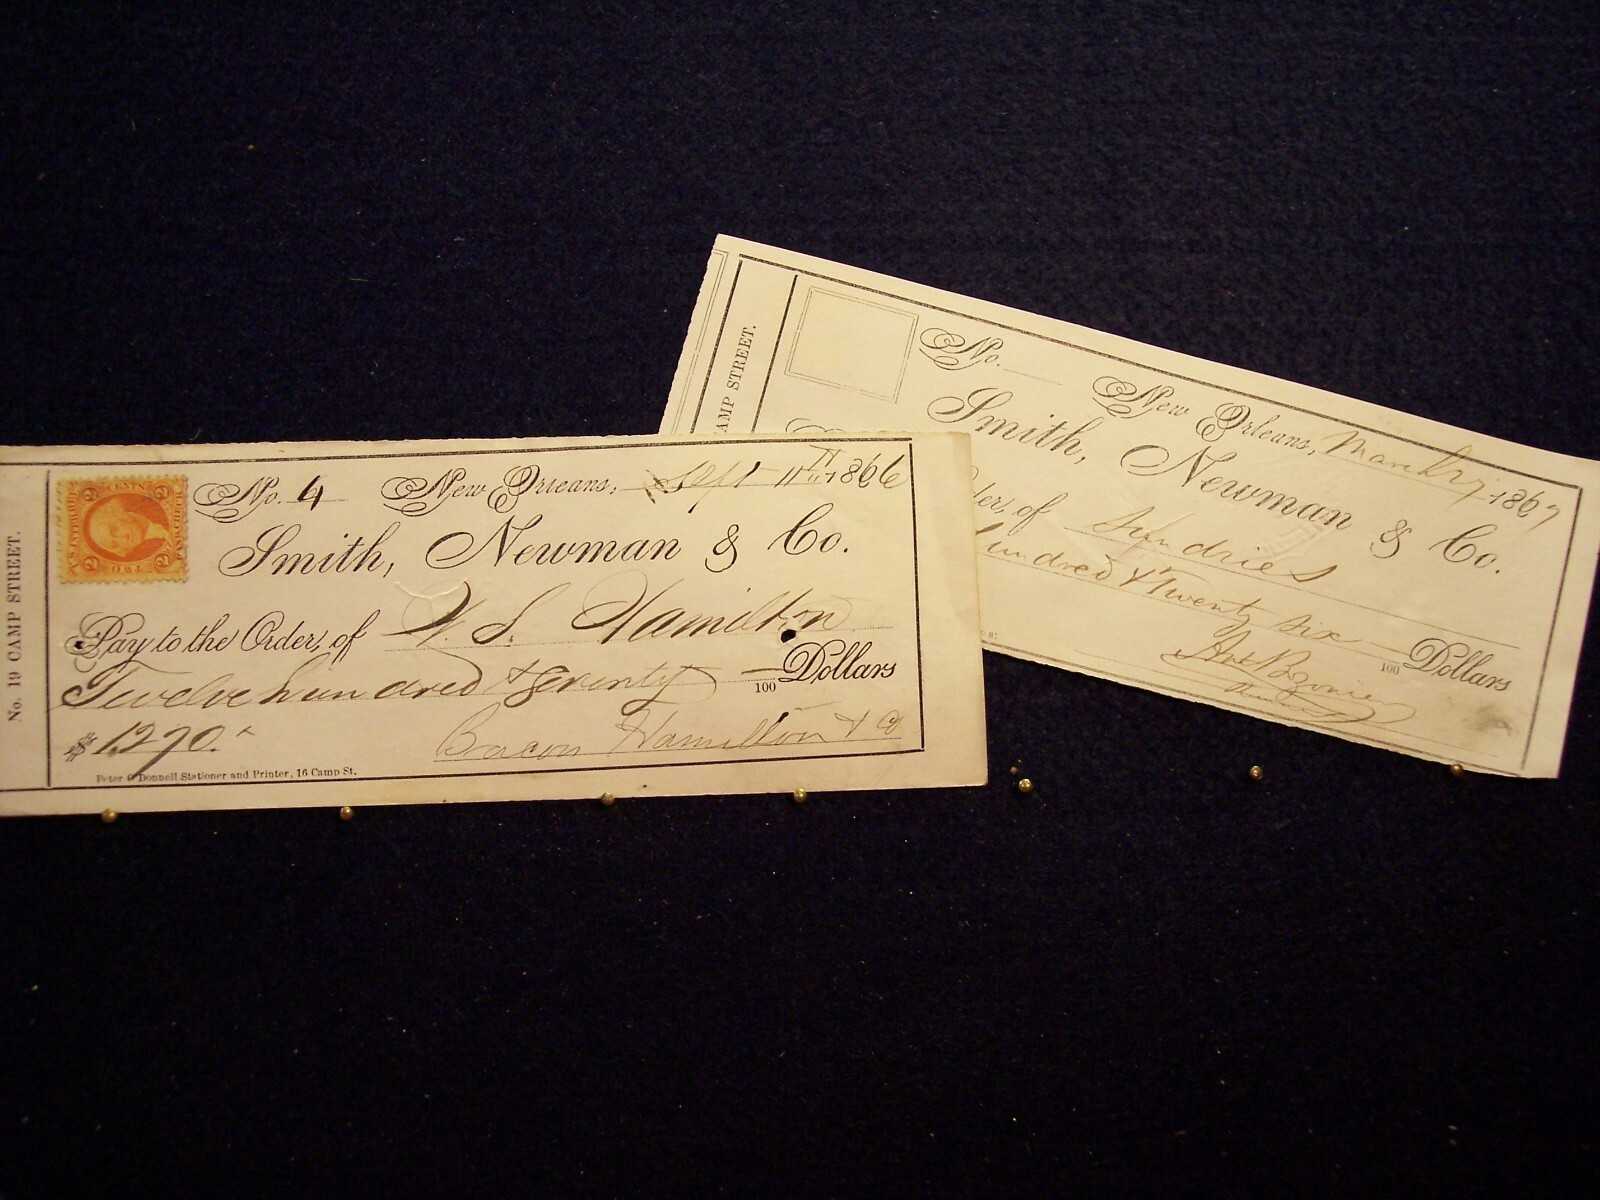 No. 19 CAMP STREET.
TWO
No. 4 New Orleans, Sept 11th 1866
Smith, Newman & Co.
Pay to the Order, of Hamilton
Twelve hundred & seventy /100 Dollars
$ 1270.
Bacon Hamilton & Co
Peter O'Donnell, Stationer and Printer, 16 Camp St.
AMP STREET.
No.
New Orleans, March 1867
Smith, Newman & Co.
der, of Sundries
undred & Twenty six
100 Dollars